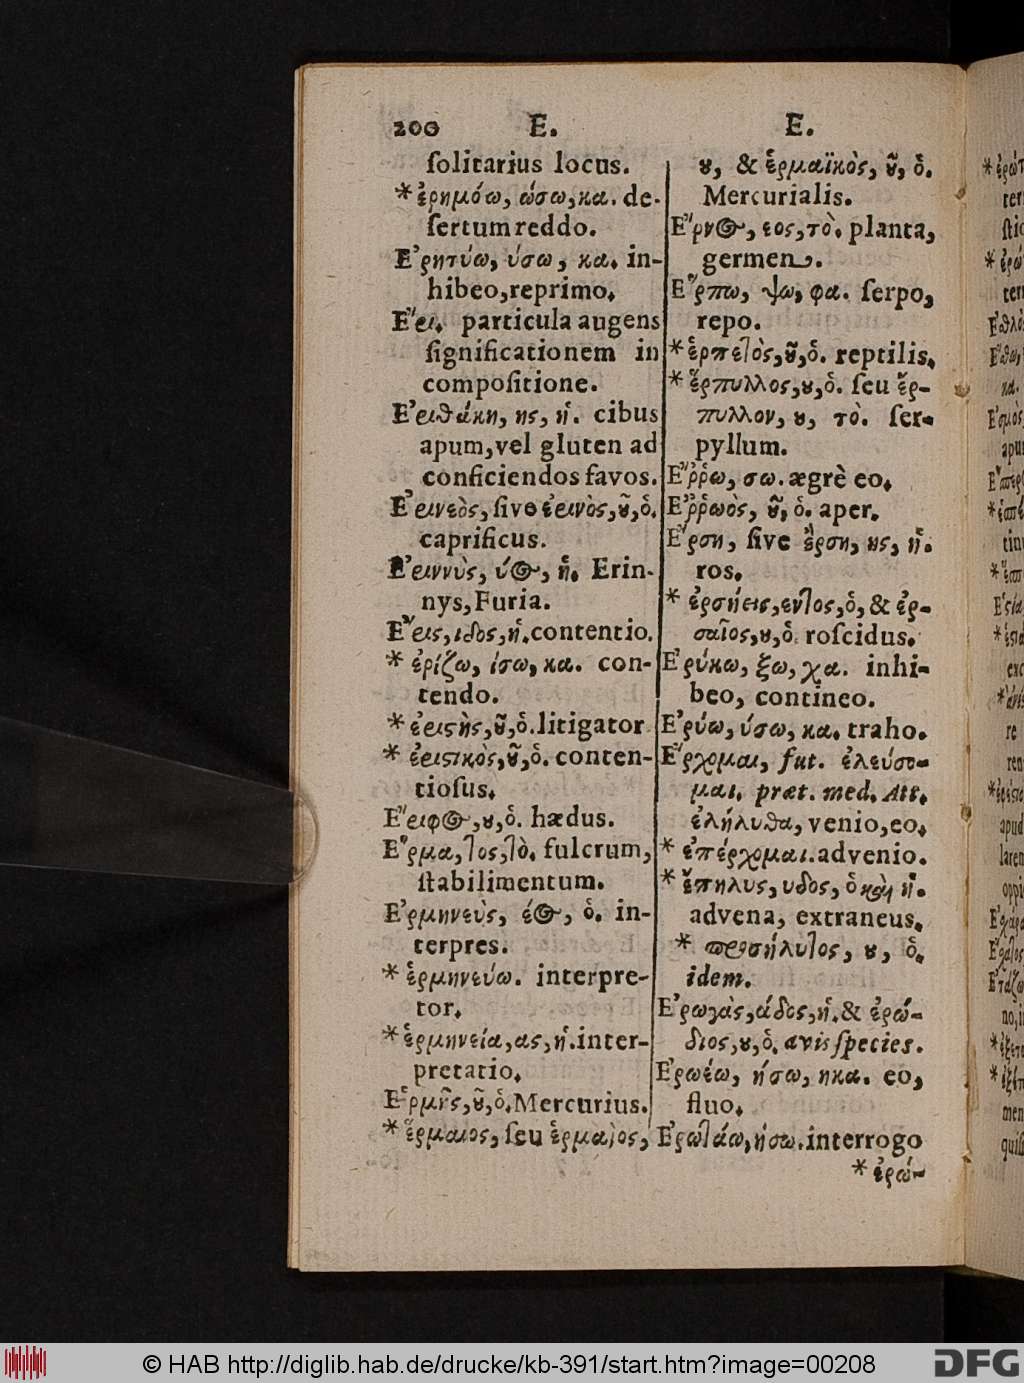 200 E. E.
ſolitarius locus.
*ἐρημόω, ώσω, κα. de-
ſertum reddo.
Ε᾿ρητύω, ύσω, κα. in-
hibeo, reprimo.
Ε῎ρι. particula augens
ſignificationem in
compoſitione.
Ε᾿ριθάκη, ης, ἡ. cibus
apum, vel gluten ad
conficiendos favos.
Ε᾿ρινεὸς, ſive ἐρινὸς, ȣ͂, ὁ.
caprificus.
Ε᾿ριννὺς, ύ⊙, ἡ. Erin-
nys, Furia.
Ε῎ρις, ιδος, ἡ. contentio.
* ἐρίζω, ίσω, κα. con-
tendo.
* ἐριϛὴς, ȣ͂, ὁ. litigator
* ἐριϛικὸς, ȣ͂, ὁ. conten-
tioſus.
Ε῎ριφ⊙, ȣ, ὁ. hædus.
Ε῞ρμα, τος, τὸ. fulcrum,
ſtabilimentum.
Ε῾ρμηνεὺς, έ⊙, ὁ. in-
terpres.
* ἑρμηνεύω. interpre-
tor.
* ἑρμηνεία, ας, ἡ. inter-
pretatio.
Ε῾ρμῆς, ȣ͂, ὁ. Mercurius.
* ἕρμαιος, ſeu ἑρμαῖος,
ȣ, & ἑρμαϊκὸς, ȣ͂, ὁ.
Mercurialis.
Ε῎ρν⊙, εος, τὸ. planta,
germen.
Ε῞ρπω, ψω, φα. ſerpo,
repo.
* ἑρπετὸς, ȣ͂, ὁ. reptilis.
* ἕρπυλλος, ȣ, ὁ. ſeu ἕρ-
πυλλον, ȣ, τὸ. ſer-
pyllum.
Ε῎ῤῥω, σω. ægrè eo.
Ε᾿ῤῥωὸς, ȣ͂, ὁ. aper.
Ε῎ρση, ſive ἕρση, ης, ἡ.
ros.
* ἐρσήεις, εντος, ὁ, & ἐρ-
σαῖος, ȣ, ὁ. roſcidus.
Ε᾿ρύκω, ξω, χα. inhi-
beo, contineo.
Ε᾿ρύω, ύσω, κα. traho.
Ε῎ρχομαι, fut. ἐλεύσο-
μαι. præt. med. Att.
ἐλήλυθα, venio, eo.
* ἐπέρχομαι. advenio.
* ἔπηλυς, υδος, ὁ καὶ ἡ.
advena, extraneus.
* προσήλυτος, ȣ, ὁ.
idem.
Ε᾿ρωγὰς, άδος, ἡ. & ἐρώ-
διος, ȣ, ὁ. avis ſpecies.
Ε᾿ρωέω, ήσω, ηκα. eo,
fluo.
Ε᾿ρωτάω, ήσω. interrogo
* ἐρώ-
© HAB http://diglib.hab.de/drucke/kb-391/start.htm?image=00208
DFG